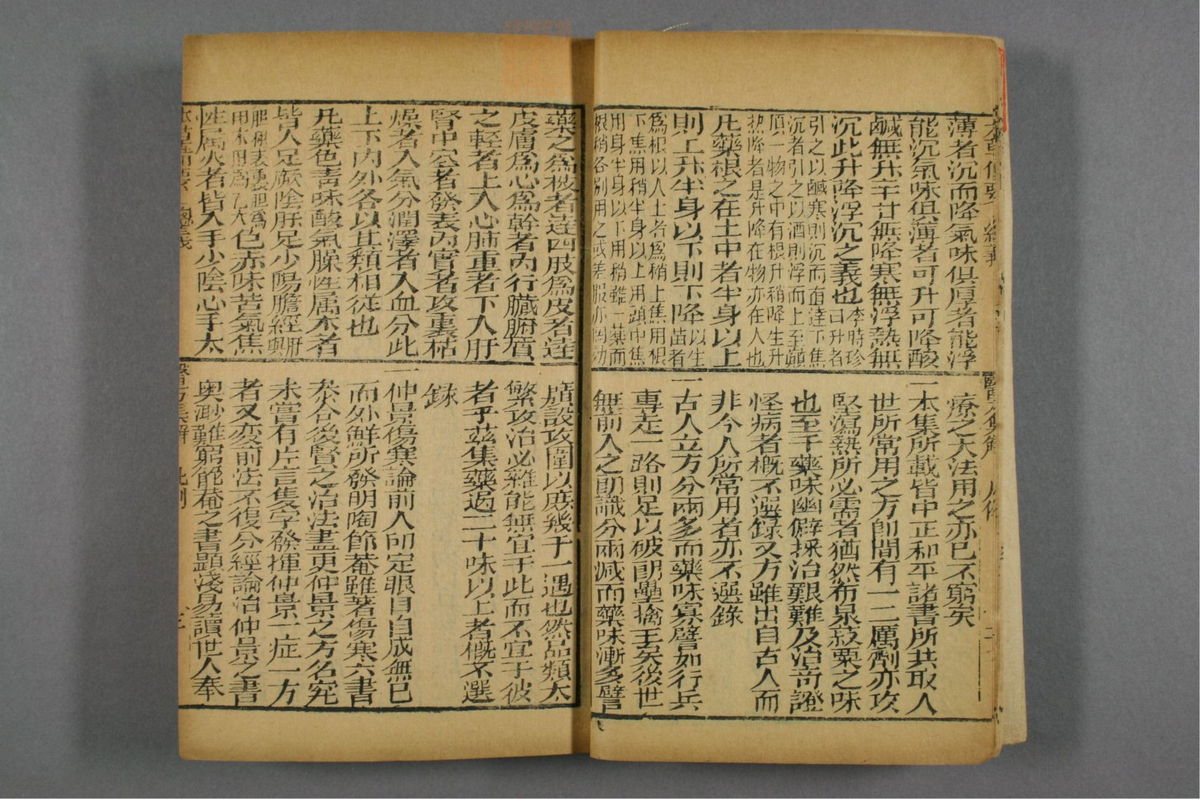 本草備要 總義
薄者沉而降氣味俱厚者能浮
能沉氣味俱薄者可升可降酸
鹹無升辛甘無降寒無浮熱無
沉此升降浮沉之義也李時珍
曰升者
引之以鹹寒則沉而直達下焦
沉者引之以酒則浮而上至顛
頂一物之中有根升稍降生升
熟降者是升降在物亦在人也
凡藥根之在土中者半身以上
則上升半身以下則下降以生
苗者
為根以入土者為稍上焦用根
下焦用稍半身以上用頭中焦
用身半身以下用稍雖一藥而
根稍各別用之或差服亦罔効
藥之為枝者達四肢為皮者達
皮膚為心為幹者內行臟腑質
之輕者上入心肺重者下入肝
腎中空者發表內實者攻裏枯
燥者入氣分潤澤者入血分此
上下內外各以其類相從也
凡藥色青味酸氣臊性属木者
皆入足厥陰肝足少陽膽經肝
膽相表裏膽為
甲木肝為乙木色赤味苦氣焦
性属火者皆入手少陰心手太
本草備要 總義
醫方集解 凡例
療之大法用之亦已不窮矣
一本集所載皆中正和平諸書所共取人
世所常用之方卽間有一二厲劑亦攻
堅瀉熱所必需者猶然布泉菽粟之味
也至于藥味幽僻採治艱難及治奇證
怪病者概不選錄又方雖出自古人而
非今人所常用者亦不選錄
一古人立方分兩多而藥味寡譬如行兵
專走一路則足以破壘擒王矣後世
無前人之膽識分兩減而藥味漸多譬
廣設攻圍以庶幾于一遇也然品類太
繁攻治必雜能無宜于此而不宜于彼
者乎茲集藥過二十味以上者概不選
錄
一仲景傷寒論前人印定眼目自成無已
而外鮮所發明陶節菴雖著傷寒六書
參合後賢之治法盡更仲景之方名究
未嘗有片言隻字發揮仲景一症一方
者又變前法不復分經論治仲景之書
奧渺難窮節菴之書顯淺易讀世人奉
醫方集解 凡例 三